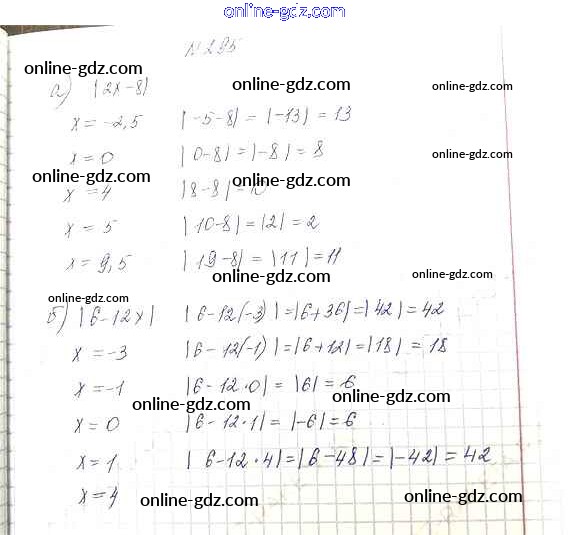 online-gdz.com
N 295
online-gdz.com
а) |2x-8| online-gdz.com online-gdz.com
x = -2,5 |-5-8| = |-13| = 13
x = 0 |0-8| = |-8| = 8 online-gdz.com
online-gdz.com online-gdz.com
x = 4 |8-8| =
x = 5 |10-8| = |2| = 2
x = 9,5 |19-8| = |11| = 11
online-gdz.com online-gdz.com
online-gdz.com
б) |6-12x| |6-12(-3)| = |6+36| = |42| = 42
x = -3 |6-12(-1)| = |6+12| = |18| = 18
x = -1 |6-12·0| = |6| = 6
online-gdz.com online-gdz.com
x = 0 |6-12·1| = |-6| = 6
x = 1 |6-12·4| = |6-48| = |-42| = 42
x = 4 online-gdz.com online-gdz.com